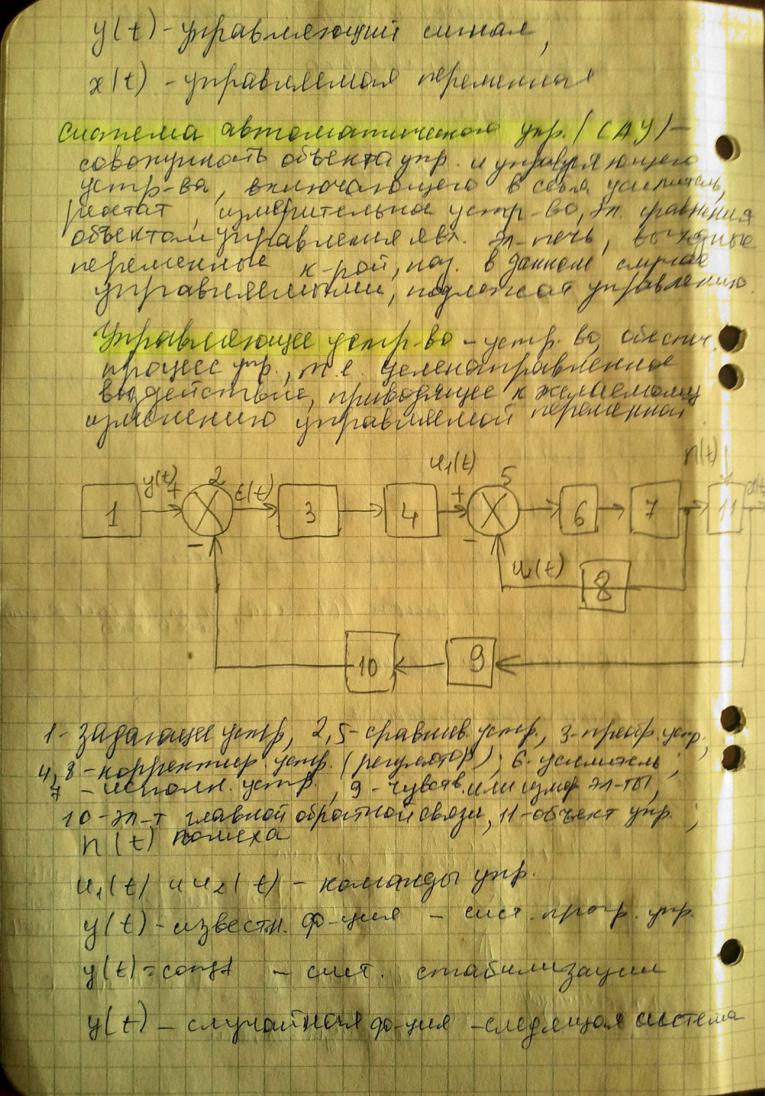 y(t) - управляющий сигнал,
x(t) - управляемая переменная
Система автоматического упр. (САУ) -
совокупность объекта упр. и управляющего
устр-ва, включающего в себя усилитель,
реостат, измерительное устр-во, эл. сравнения
объектом управления явл. эл-печь, выходные
переменные к-рой, наз. в данном случае
управляемыми, подлежат управлению.
Управляющее устр-во - устр-во, обеспеч.
процесс упр., т.е. целенаправленное
воздействие, приводящее к желаемому
изменению управляемой переменной
u₁(t) n(t)
y(t) 2 ε(t) 5
+ +
1 3 4 6 7 11
- -
u₂(t) 8
10 9
1 - задающее устр, 2,5 - сравнив. устр., 3 - преобр. устр,
4,8 - корректир. устр. (регулятор); 6 - усилитель;
7 - исполн. устр, 9 - чувств. или измер эл-ты,
10 - эл-т главной обратной связи, 11 - объект упр.;
n(t) помеха
u₁(t) и u₂(t) - команды упр.
y(t) - известн. ф-ция - сист. прогр. упр.
y(t) = const - сист. стабилизации
y(t) - случайная ф-ция - следящая система